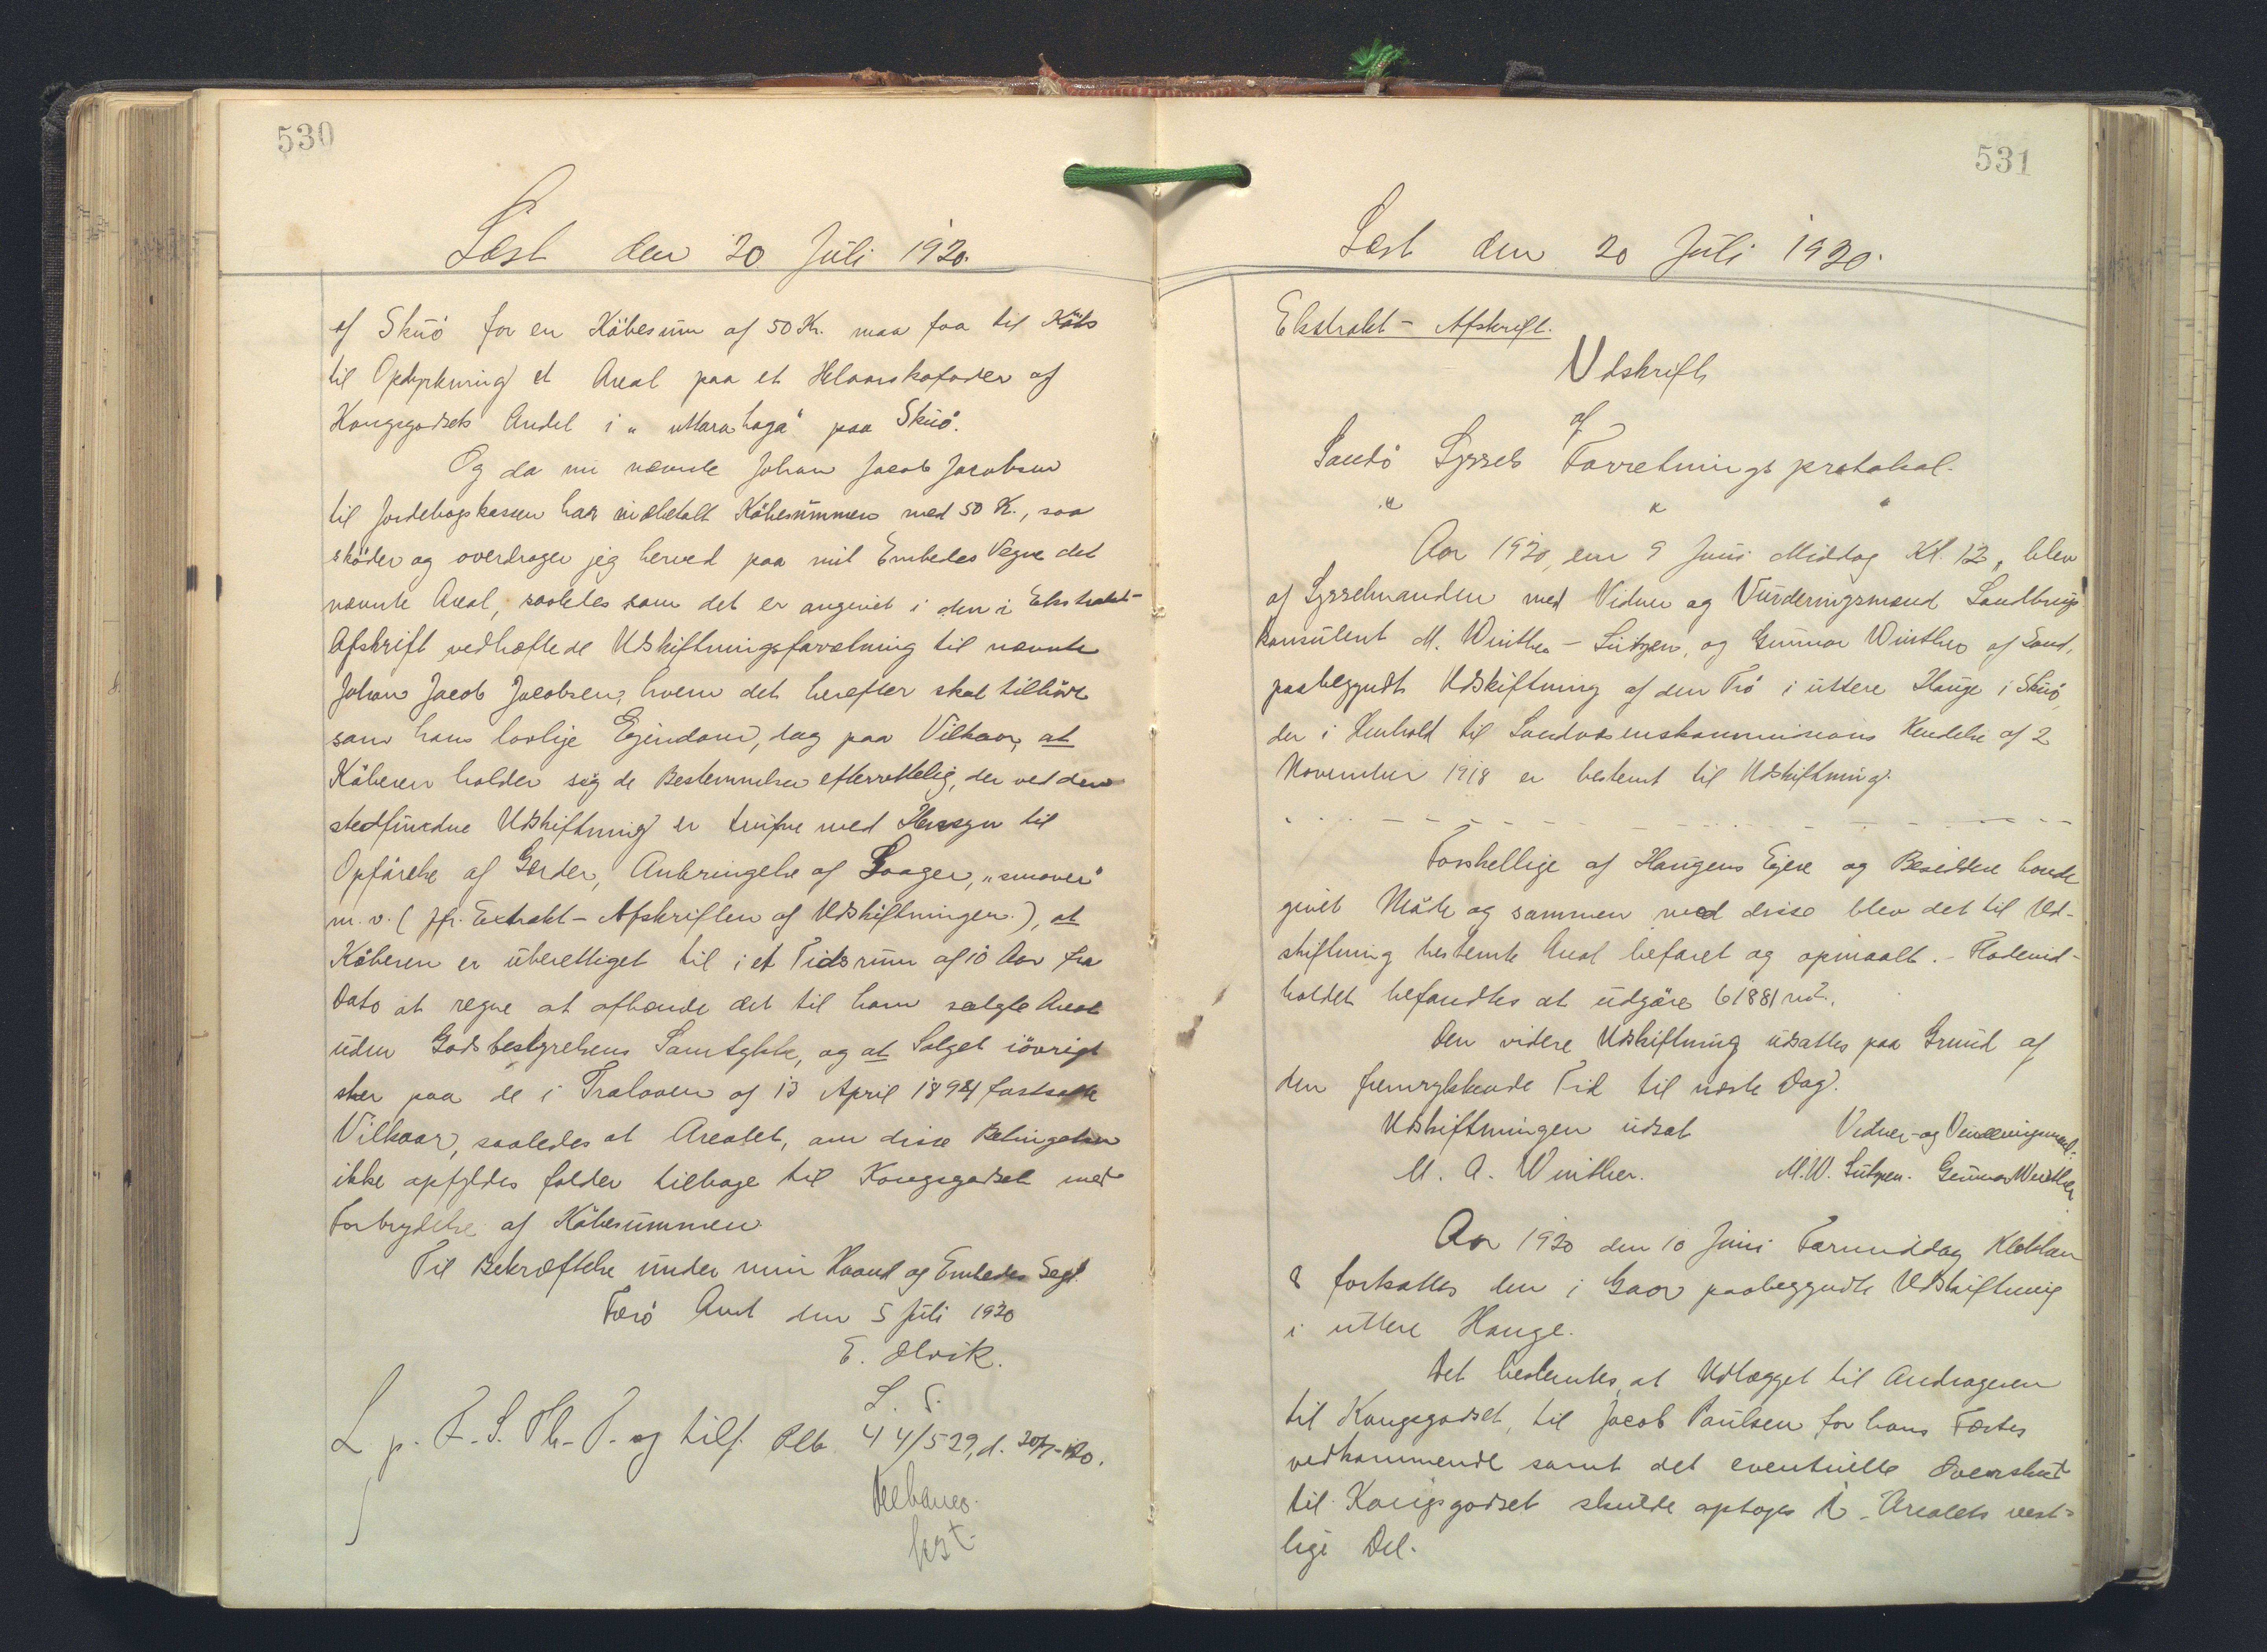 530
Læst den 20 Juli 1920.
af Skuö for en Köbesum af 50 Kr. maa faa til Köbs
til Opdyrkning et Areal paa et Helaarskofoder af
Kongsgodsets Andel i "uttarahaga" paa Skuö.
Og da nu nævnte Johan Jacob Jacobsen
til Jordebogskassen har indbetalt Köbesummen med 50 Kr., saa
sköder og overdrager jeg herved paa mit Embedes Vegne det
nævnte Areal, saaledes som det er angivet i den i Ekstrakt-
Afskrift vedhæftede Udskiftningsforretning til nævnte
Johan Jacob Jacobsen, hvem det herefter skal tilhöre
som hans lovlige Ejendom, dog paa Vilkaar, at
Köberen holder sig de Bestemmelser efterrettelig, der ved den
stedfundne Udskiftning er trufne med Hensyn til
Opförelse af Gærder, Anbringelse af Laager, "smover"
m. v. (jfr. Extrakt-Afskriften af Udskiftningen), at
Köberen er uberettiget til i et Tidsrum af 10 Aar fra
Dato at regne at afhænde det til ham solgte Areal
uden Godsbestyrelsens Samtykke, og at Salget iövrigt
sker paa de i Traloven af 13 April 1894 fastsatte
Vilkaar, saaledes at Arealet, om disse Betingelser
ikke opfyldes falder tilbage til Kongsgodset med
Forbrydelse af Köbesummen.
Til Bekræftelse under min Haand og Embedes Segl.
Færö Amt den 5 Juli 1920
E. Olrik.
L. S.
L. p. F. S. Th. P. og tilf. Plb. 44/529, d. 20/7-1920.
kst.
531
Læst den 20 Juli 1920.
Ekstrakt-Afskrift.
Udskrift
af
Sandö Syssels Forretningsprotokol.
" " "
Aar 1920, den 9 Juni Middag Kl. 12, blev
af Sysselmanden med Vidner og Vurderingsmænd Landbrugs
konsulent M. Winther-Lützen, og Gunnar Winther af Sand,
paabegyndt Udskiftning af den Trö i uttere Hauge i Skuö,
der i Henhold til Landvæsenskommissions Kendelse af 2
November 1918 er bestemt til Udskiftning.
- - - - - - - - - - - - - - -
Forskellige af Haugens Ejere og Besiddere havde
givet Möde og sammen med disse blev det til Ud-
skiftning bestemte Areal befaret og opmaalt. - Fladeind-
holdet befandtes at udgöre 61881 m².
Den videre Udskiftning udsattes paa Grund af
den fremrykkende Tid til næste Dag.
Udskiftningen udsat
Vidner- og Vurderingsmænd.
M. A. Winther.
M. W. Lützen. Gunnar Winther
Aar 1920 den 10 Juni Formiddag Klokken
8 fortsattes den i Gaar paabegyndte Udskiftning
i uttere Hauge.
Det bestemtes, at Udlægget til Andrageren
til Kongsgodset, til Jacob Paulsen for hans Fæstes
vedkommende samt det eventuelle Overskud
til Kongsgodset skulde optages i Arealets vest-
lige Del.